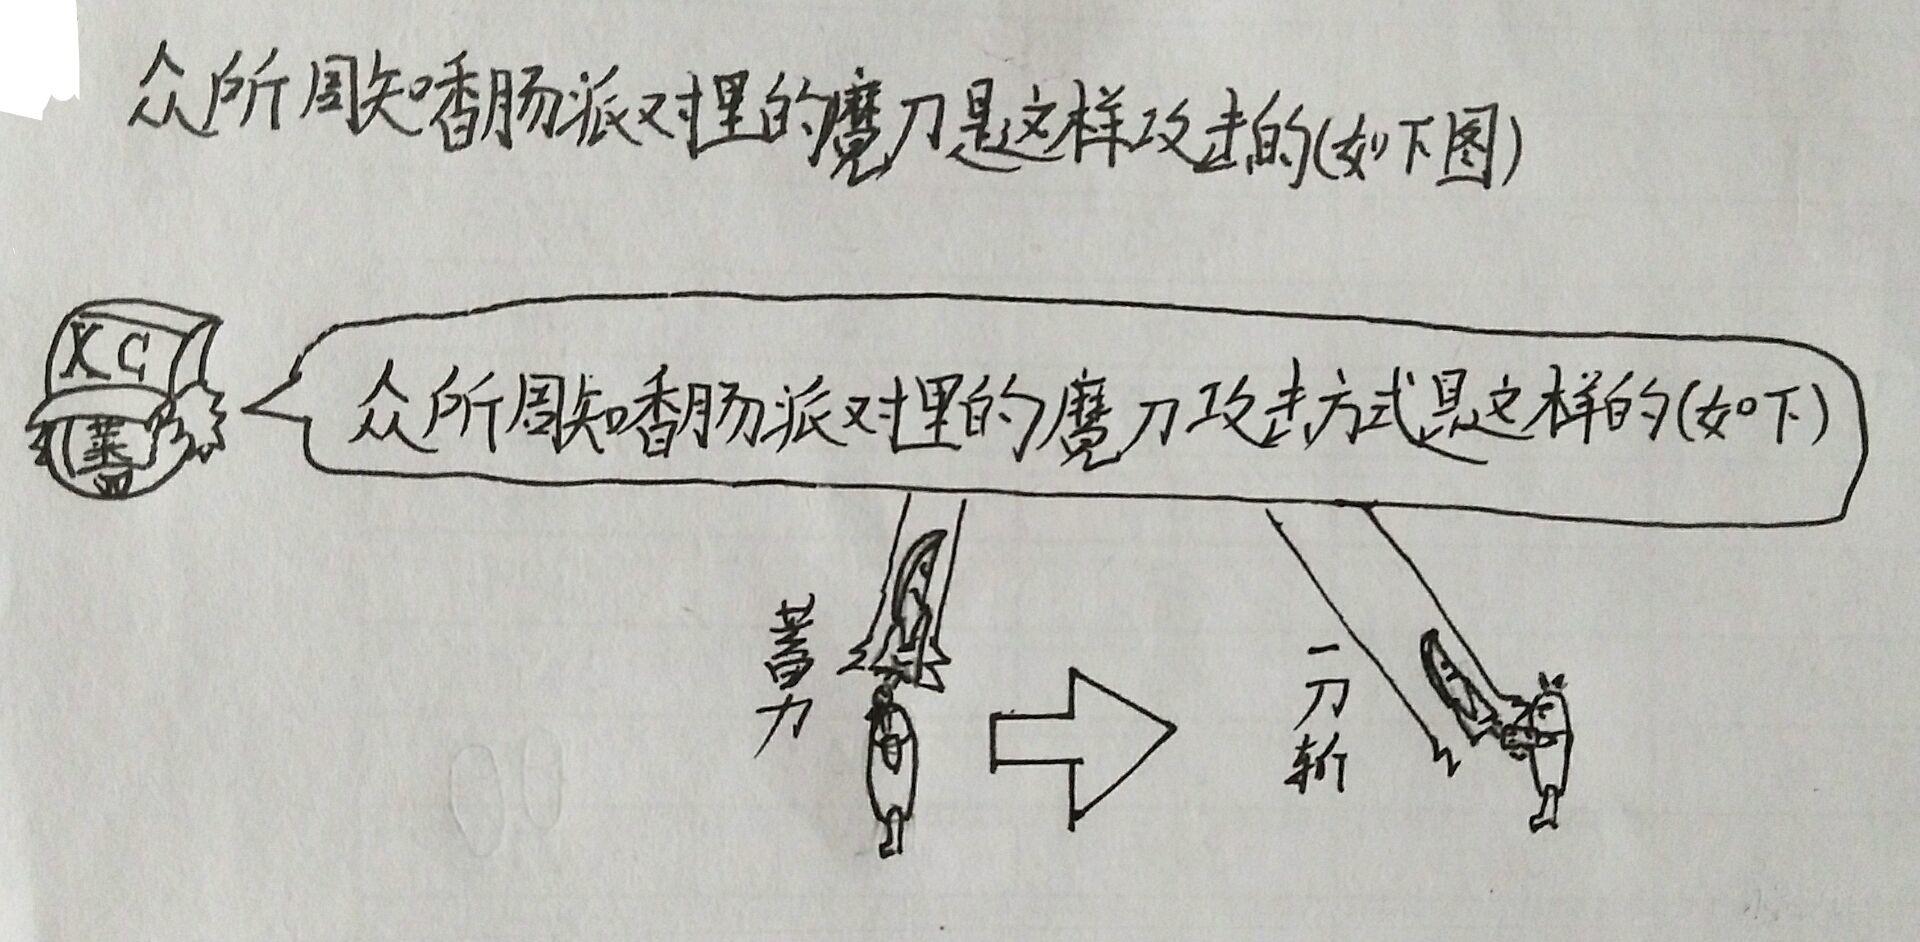 众所周知香肠派对里的魔刀是这样攻击的(如下图)
XC
众所周知香肠派对里的魔刀攻击方式是这样的(如下)
蓄力
一刀斩